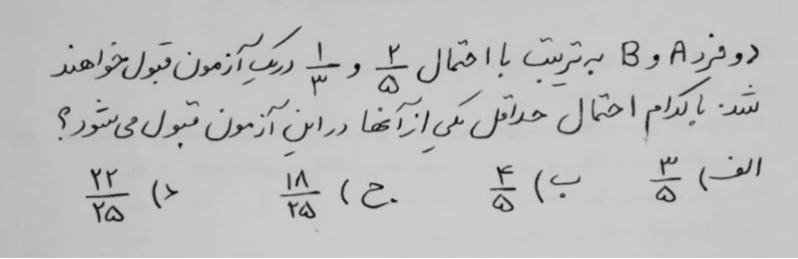 دو فرد A و B به ترتیب با احتمال ۲/۵ و ۱/۳ در یک آزمون قبول خواهند
شد. با کدام احتمال حداقل یکی از آنها در این آزمون قبول می شود؟
الف) ۳/۵ ب) ۴/۵ ج) ۱۸/۲۵ د) ۲۲/۲۵